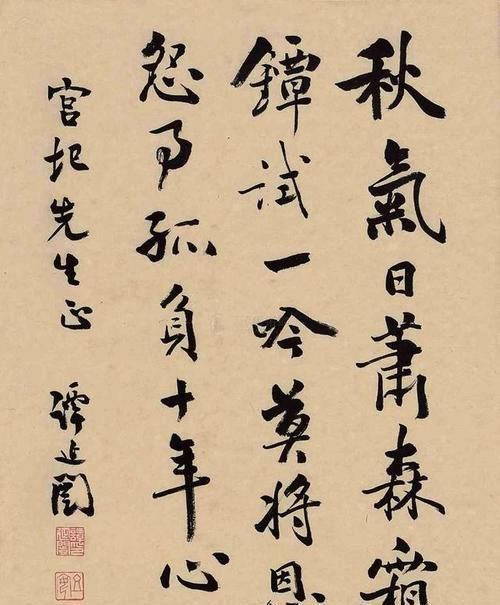 秋氣日蕭森霜
鐔試一吟莫將恩
怨事孤負十年心
宮圯先生正
譚延闓